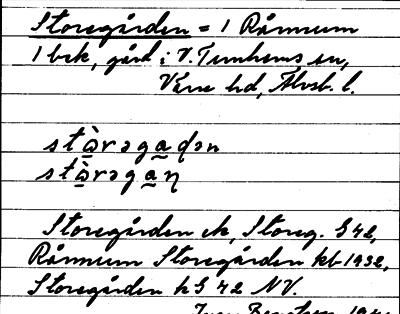 Storegården = 1 Rånnum
1 bck, gård i V. Tunhems sn,
Väne hd, Älvsb. l.
stò̱rəga̱ḍən
stò̱rəga̱ṇ
Storegården ek, Storeg. G 42,
Rånnum Storegården kb 1932,
Storegården hG 42 NV.